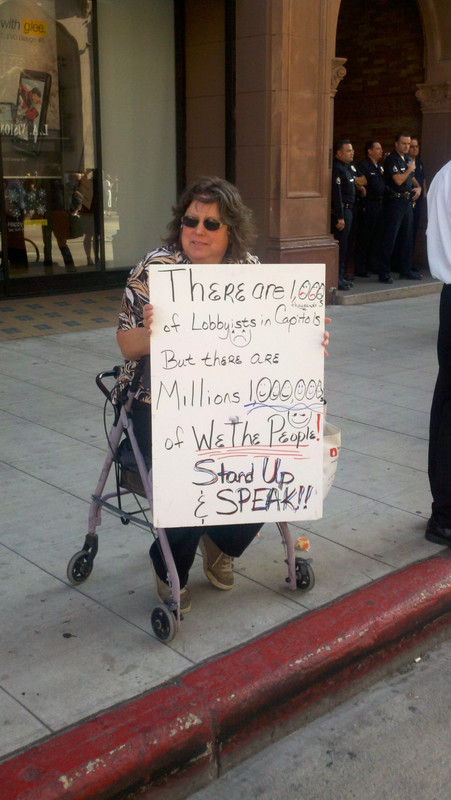 with glee.
THERE are 1,000s
thousands
of Lobbyists in Capitols
But there are
Millions 1,000,000s
of We The People!
Stand Up
& SPEAK!!